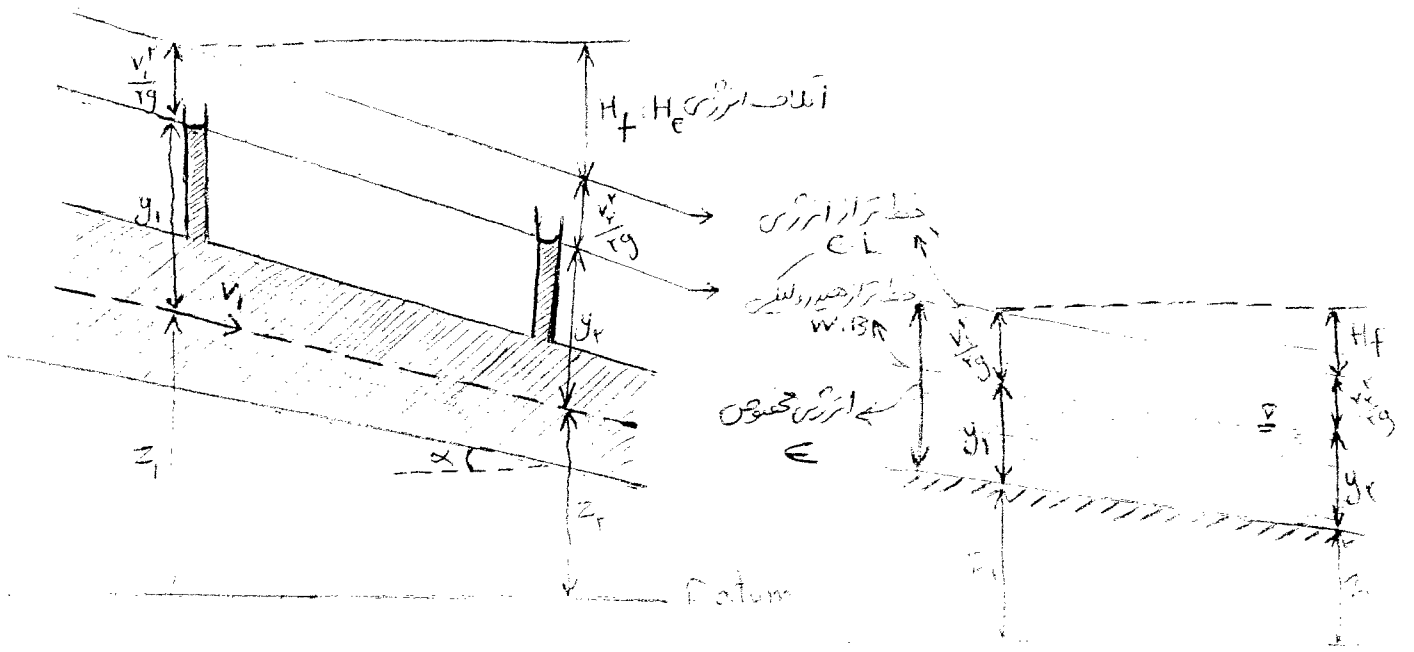 V₁²/۲g
y₁
V₁
Z₁
α
H_f : H_e اتلاف انرژی
V₂²/۲g
y₂
Z₂
Datum
خط تراز انرژی
E.L
خط تراز هیدرولیکی
W.B
انرژی مخصوص
E
V₁²/۲g
y₁
Z₁
H_f
V₂²/۲g
y₂